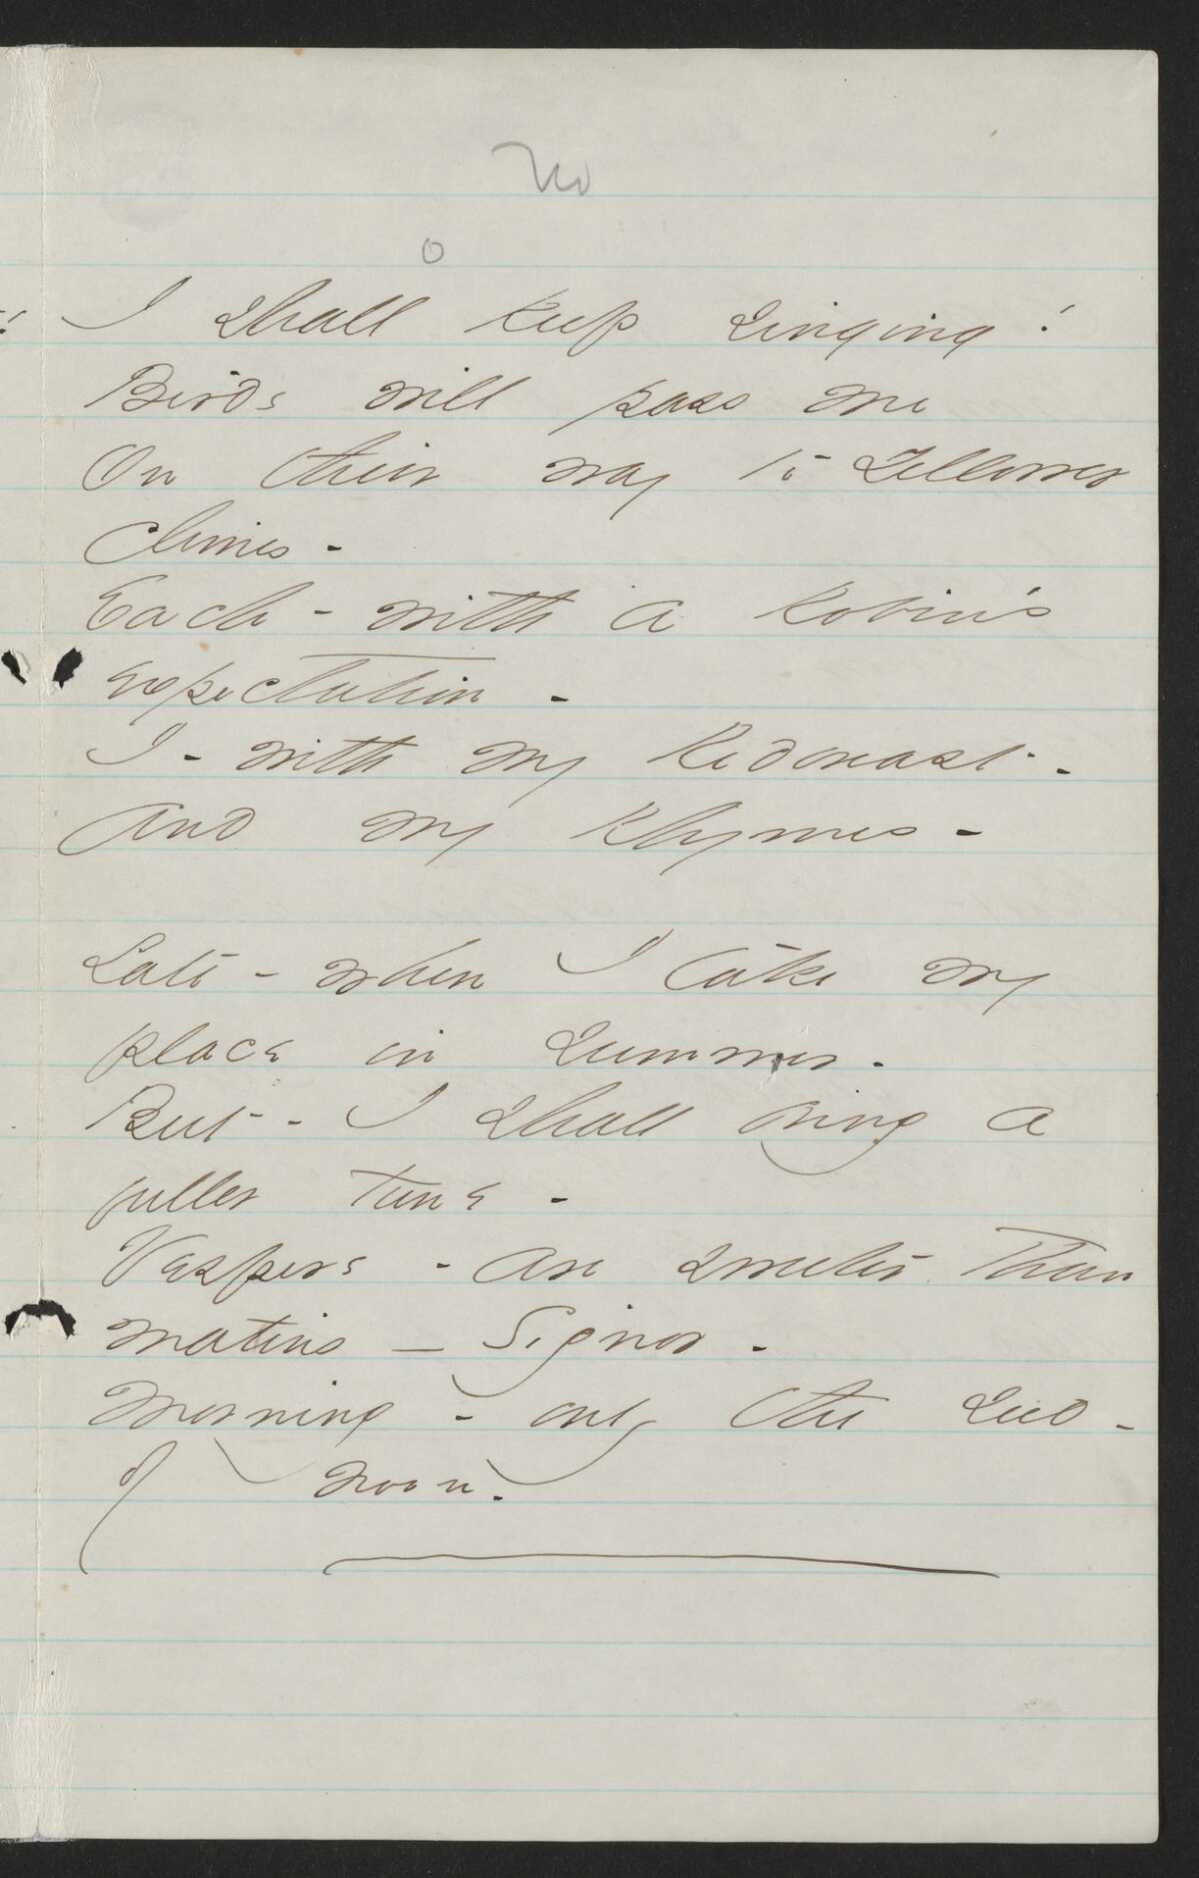 No
o
I shall keep singing!
Birds will pass me
On their way to Yellower
Climes -
Each - with a Robin's
expectation -
I - with my Redbreast -
And my Rhymes -
Late - when I take my
place in summer -
But - I shall bring a
fuller tune -
Vespers - are sweeter than
matins - Signor -
Morning - only the seed -
of noon -